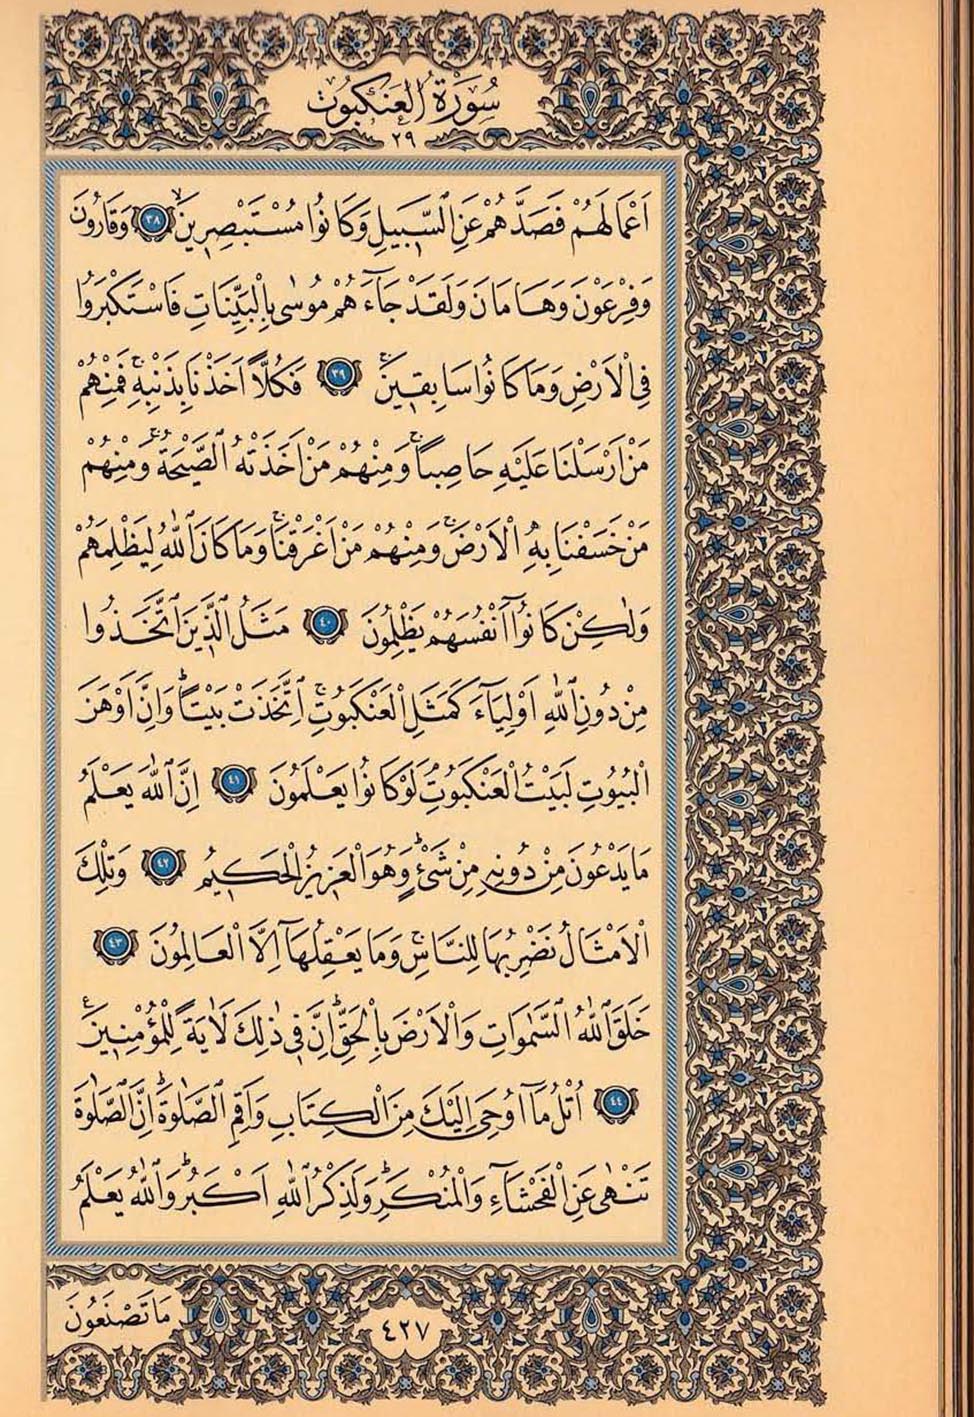 سُورَةُ الْعَنْكَبُوتِ
٢٩
اَعْمَالَهُمْ فَصَدَّهُمْ عَنِ السَّبِيلِ وَكَانُوا مُسْتَبْصِرِينَۙ ﴿٣٨﴾ وَقَارُونَ
وَفِرْعَوْنَ وَهَامَانَ وَلَقَدْ جَٓاءَهُمْ مُوسٰى بِالْبَيِّنَاتِ فَاسْتَكْبَرُوا
فِي الْاَرْضِ وَمَا كَانُوا سَابِقِينَۚ ﴿٣٩﴾ فَكُلًّا اَخَذْنَا بِذَنْبِهِۚ فَمِنْهُمْ
مَنْ اَرْسَلْنَا عَلَيْهِ حَاصِبًاۚ وَمِنْهُمْ مَنْ اَخَذَتْهُ الصَّيْحَةُۚ وَمِنْهُمْ
مَنْ خَسَفْنَا بِهِ الْاَرْضَۚ وَمِنْهُمْ مَنْ اَغْرَقْنَاۚ وَمَا كَانَ اللّٰهُ لِيَظْلِمَهُمْ
وَلٰكِنْ كَانُٓوا اَنْفُسَهُمْ يَظْلِمُونَ ﴿٤٠﴾ مَثَلُ الَّذِينَ اتَّخَذُوا
مِنْ دُونِ اللّٰهِ اَوْلِيَٓاءَ كَمَثَلِ الْعَنْكَبُوتِۚ اِتَّخَذَتْ بَيْتًاۜ وَاِنَّ اَوْهَنَ
الْبُيُوتِ لَبَيْتُ الْعَنْكَبُوتِۢ لَوْ كَانُوا يَعْلَمُونَ ﴿٤١﴾ اِنَّ اللّٰهَ يَعْلَمُ
مَا يَدْعُونَ مِنْ دُونِهِ مِنْ شَيْءٍۜ وَهُوَ الْعَزِيزُ الْحَكِيمُ ﴿٤٢﴾ وَتِلْكَ
الْاَمْثَالُ نَضْرِبُهَا لِلنَّاسِۚ وَمَا يَعْقِلُهَٓا اِلَّا الْعَالِمُونَ ﴿٤٣﴾
خَلَقَ اللّٰهُ السَّمٰوَاتِ وَالْاَرْضَ بِالْحَقِّۜ اِنَّ فِي ذٰلِكَ لَاٰيَةً لِلْمُؤْمِنِينَ ع
﴿٤٤﴾ اُتْلُ مَٓا اُوحِيَ اِلَيْكَ مِنَ الْكِتَابِ وَاَقِمِ الصَّلٰوةَۜ اِنَّ الصَّلٰوةَ
تَنْهٰى عَنِ الْفَحْشَٓاءِ وَالْمُنْكَرِۜ وَلَذِكْرُ اللّٰهِ اَكْبَرُۜ وَاللّٰهُ يَعْلَمُ
مَا تَصْنَعُونَ
٤٢٧